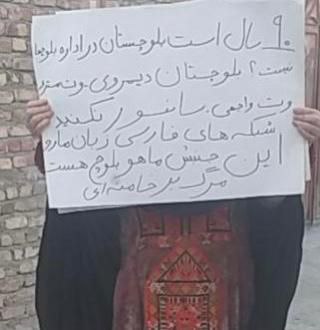 ۹۰ سال است بلوچستان در اداره بلوچها
نیست؟ بلوچستان دیمروی
وت واجهی. سانسور نکنید
شبکه های فارسی زبان مارو
این جنبش ما هو بلوچ هست
مرگ بر خامنه‌ای